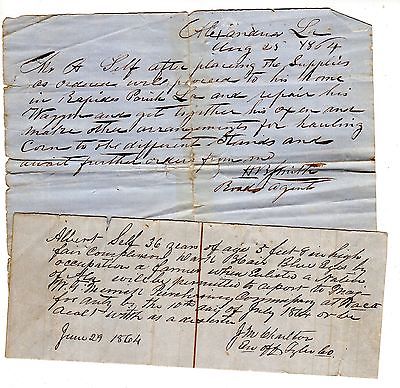 Alexandria La
Aug 25 1864
Mr A Self after placing the Supplies
as ordered will proceed to his home
in Rapides Parish La and repair his
Waggon and get together his oxen and
make other arrangements for hauling
Corn to the different Stands and
await further orders from me
H B Smith
Road Agent
Albert Self 36 years of age 5 feet 9 in high
fair Complexion, Dark Hair, Blue Eyes by
occupation a farmer when Enlisted a
of will be permitted to report to Maj
W. J. Purchasing Commissary at Waco
for duty by the 10th day of July 1864 or be
dealt with as a deserter
J. M. Charlton
June 29 1864 Co